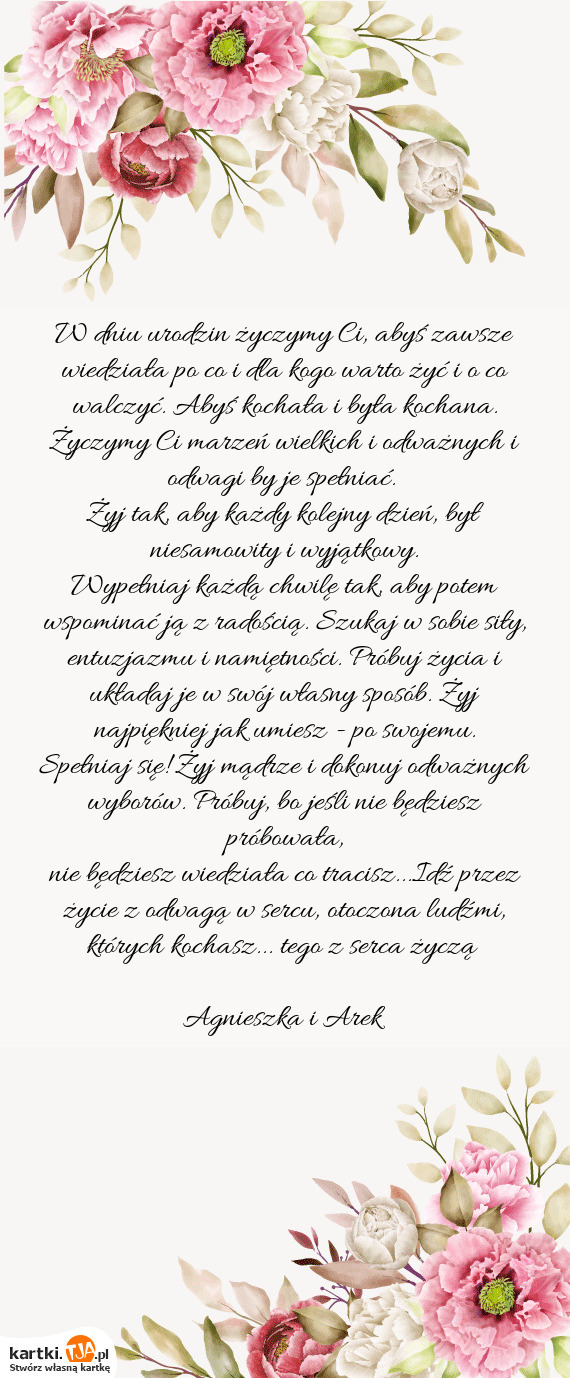 W dniu urodzin życzymy Ci, abyś zawsze
wiedziała po co i dla kogo warto żyć i o co
walczyć. Abyś kochała i była kochana.
Życzymy Ci marzeń wielkich i odważnych i
odwagi by je spełniać.
Żyj tak, aby każdy kolejny dzień, był
niesamowity i wyjątkowy.
Wypełniaj każdą chwilę tak, aby potem
wspominać ją z radością. Szukaj w sobie siły,
entuzjazmu i namiętności. Próbuj życia i
układaj je w swój własny sposób. Żyj
najpiękniej jak umiesz - po swojemu.
Spełniaj się! Żyj mądrze i dokonuj odważnych
wyborów. Próbuj, bo jeśli nie będziesz
próbowała,
nie będziesz wiedziała co tracisz...Idź przez
życie z odwagą w sercu, otoczona ludźmi,
których kochasz... tego z serca życzą
Agnieszka i Arek
kartki.TJA.pl
Stwórz własną kartkę